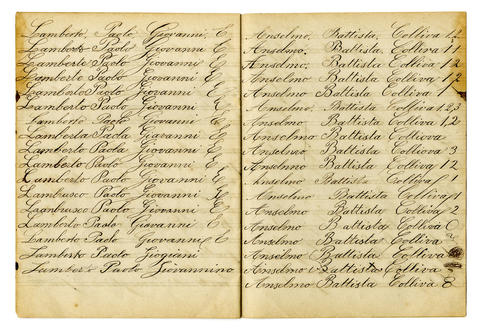 Lamberto, Paolo Giovanni, E
Lamberto Paolo Giovanni E
Lamberto Paolo Giovanni E
Lamberto Paolo Giovanni E
Lamberto Paolo Giovanni E
Lamberto Paolo Giovanni E
Lamberto Paolo Giovanni E
Lamberta Paola Giovanni E
Lamberto Paolo Giovanni E
Lamberto Paolo Giovanni E
Lamberto Paolo Giovanni E
Lambrusco Paolo Giovanni E
Lambrusco Paolo Giovanni E
Lamberto Paolo Giovanni E
Lamberto Paolo Giovanni E
Lamberto Paolo Giogiani
Lamberto Paolo Giovannino
Anselmo, Battista, Colliva 1,2
Anselmo, Battista Colliva 1 1
Anselmo, Battista, Colliva 1,2
Anselmo Battista Colliva 1,2
Anselmo Battista Colliva 1
Anselmo, Battista Colliva 1,2,3
Anselmo Battista Colliva 1,2
Anselmo Battista Colliva
Anselmo Battista Colliva 3
Anselmo Battista Colliva 12
Anselmo Battista Colliva 1
Anselmo Battista Colliva 1
Anselmo Battista Colliva 2
Anselmo Battista Colliva
Anselmo Battista Colliva
Anselmo Battista Colliva
Anselmo Battista Colliva
Anselmo Battista Colliva 8